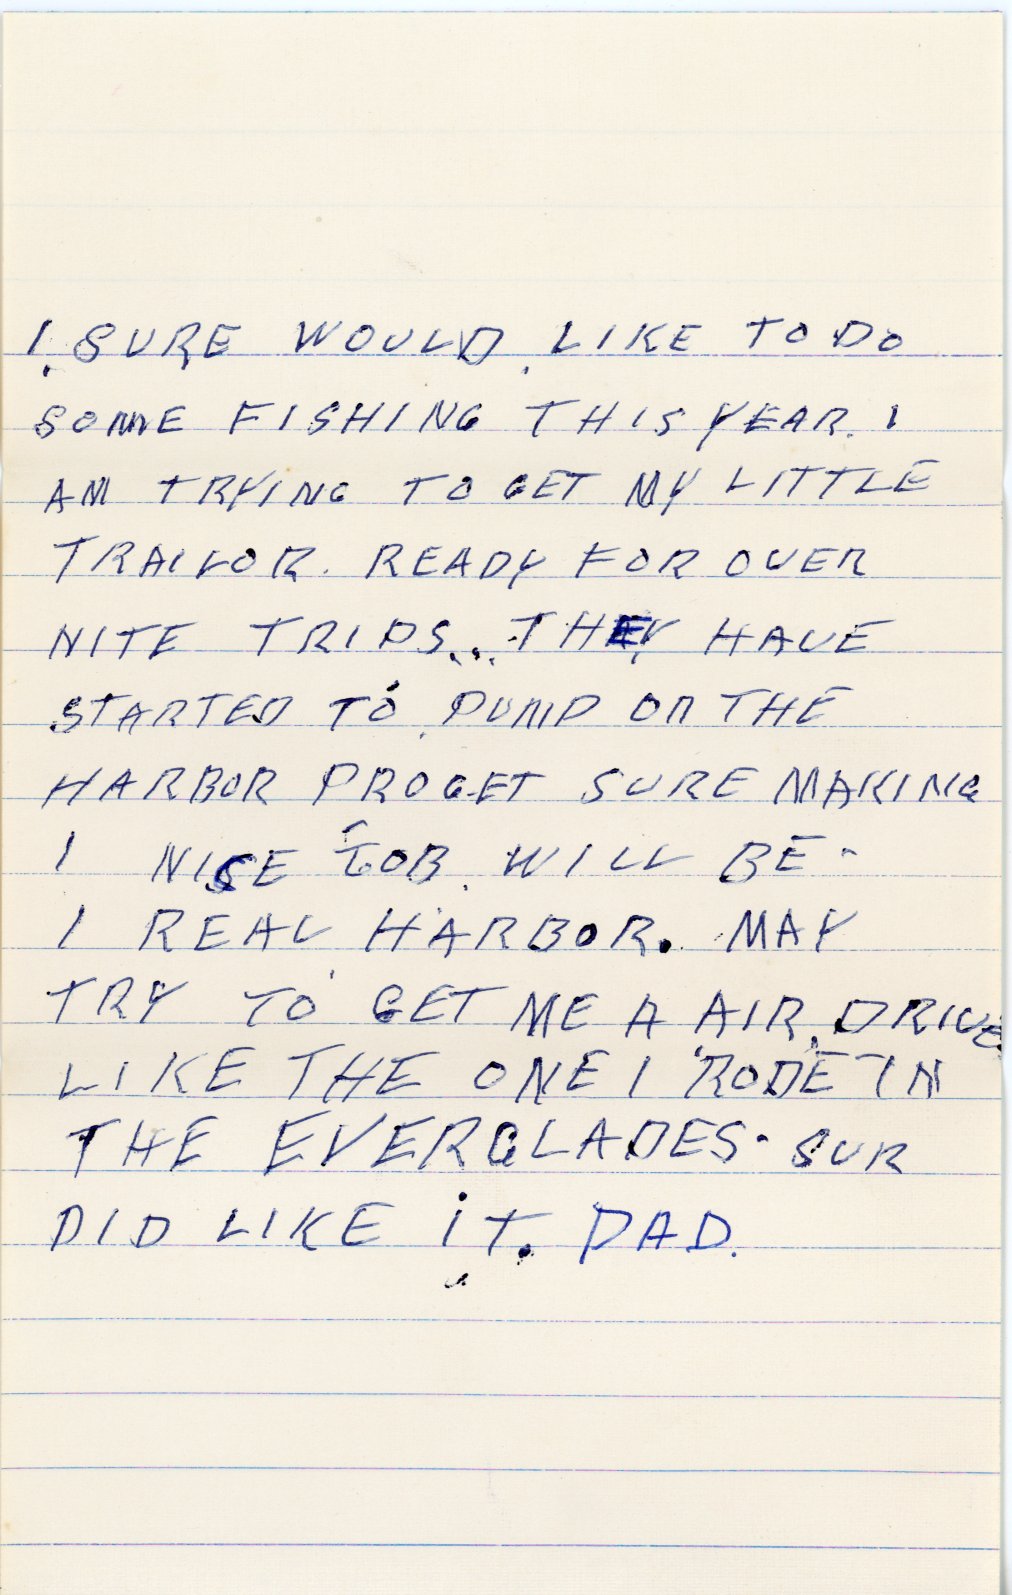 I SURE WOULD LIKE TO DO
SOME FISHING THIS YEAR. I
AM TRYING TO GET MY LITTLE
TRAILOR. READY FOR OVER
NITE TRIPS... THEY HAVE
STARTED TO PUMP ON THE
HARBOR PROGET SURE MAKING
I NISE JOB. WILL BE-
I REAL HARBOR. MAY
TRY TO GET ME A AIR DRIVE
LIKE THE ONE I RODE IN
THE EVERGLADES. SUR
DID LIKE iT. DAD.